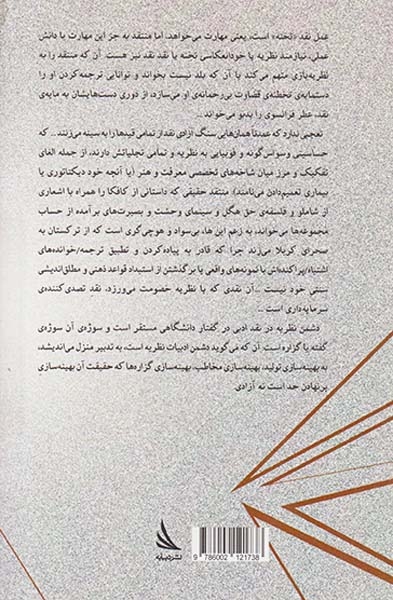 عمل نقد «تخنه» است، یعنی مهارت می‌خواهد. اما منتقد به جز این مهارت یا دانش
عملی، نیازمند نظریه یا خودانعکاسی تخنه یا نقد نقد نیز هست. آن که منتقد را به
نظریه‌بازی متهم می‌کند یا آن که بلد نیست بخواند و توانایی ترجمه‌کردن او را
دستمایه‌ی تخطئه‌ی قضاوت بی‌رحمانه‌ی او می‌سازد، از دوری دست‌هایشان به مایه‌ی
نقد، عطر فرانسوی را بدبو می‌خواند ...
تعجبی ندارد که عمدتاً همان‌هایی سنگ آزادی نقد از تمامی قیدها را به سینه می‌زنند... که
حساسیتی وسواس‌گونه و فوبیایی به نظریه و تمامی تجلیاتش دارند، از جمله الغای
تفکیک و مرز میان شاخه‌های تخصصی معرفت و هنر (یا آنچه خود دیکتاتوری یا
بیماری تعمیم‌دادن می‌نامند)؛ منتقد حقیقی که داستانی از کافکا را همراه با اشعاری
از شاملو و فلسفه‌ی حق هگل و سینمای وحشت و بصیرت‌های برآمده از حساب
مجموعه‌ها می‌خواند، به زعم این ها، بی‌سواد و هوچی‌گری است که از ترکستان به
صحرای کربلا می‌زند چرا که قادر به پیاده‌کردن و تطبیق ترجمه/خوانده‌های
اشتباه/پراکنده‌اش با نمونه‌های واقعی یا برگذشتن از استبداد قواعد ذهنی و مطلق‌اندیشی
سنتی خود نیست ... آن نقدی که با نظریه خصومت می‌ورزد، نقدِ تصدی‌کننده‌ی
سرمایه‌داری است ...
دشمن نظریه در نقد ادبی در گفتار دانشگاهی مستقر است و سوژه‌ی آن سوژه‌ی
گفته یا گزاره است. آن که می‌گوید دشمن ادبیات نظریه است، به تدبیر منزل می‌اندیشد،
به بهینه‌سازی تولید، بهینه‌سازی مخاطب، بهینه‌سازی گزاره‌ها که حقیقت آن بهینه‌سازی
برنهادن حد است نه آزادی
9 786002 121738
نشر دیبایه